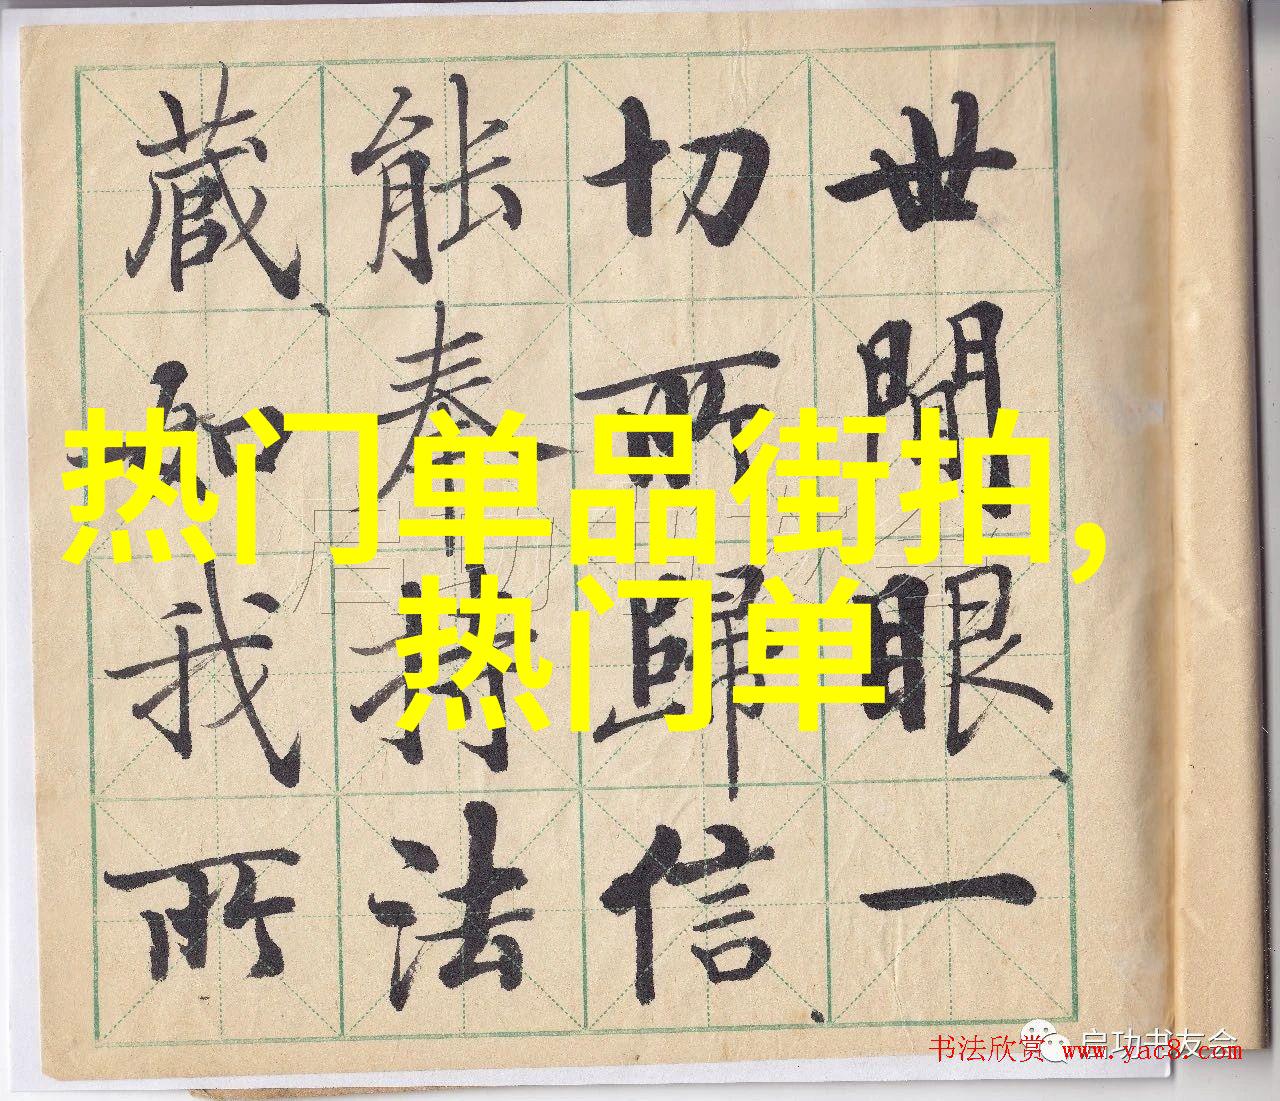 世間眼一
切所歸信
能奉持法
藏如我所
热门单品街拍,
热门单
启功书友会
书法欣赏 www.yac8.com